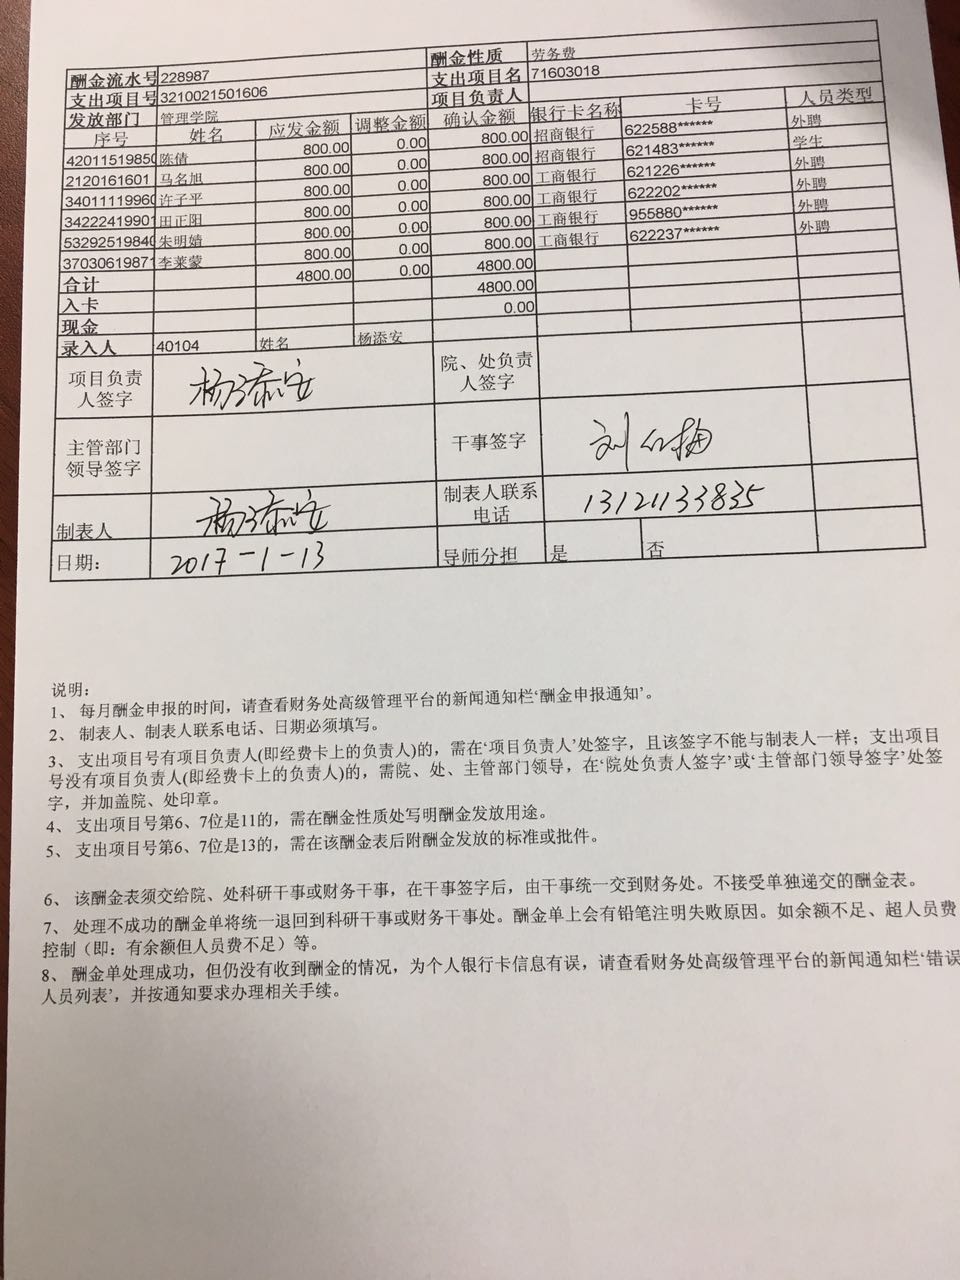 酬金流水号 228987 酬金性质 劳务费
支出项目号 3210021501606 支出项目名 71603018
发放部门 管理学院 项目负责人
序号 姓名 应发金额 调整金额 确认金额 银行卡名称 卡号 人员类型
42011519850 陈倩 800.00 0.00 800.00 招商银行 622588****** 外聘
2120161601 马名旭 800.00 0.00 800.00 招商银行 621483****** 学生
34011119960 许子平 800.00 0.00 800.00 工商银行 621226****** 外聘
34222419901 田正阳 800.00 0.00 800.00 工商银行 622202****** 外聘
53292519840 朱明婧 800.00 0.00 800.00 工商银行 955880****** 外聘
37030619871 李莱蒙 800.00 0.00 800.00 工商银行 622237****** 外聘
合计 4800.00 0.00 4800.00
入卡 4800.00
现金 0.00
录入人 40104 姓名 杨添安
项目负责人签字 杨添安 院、处负责人签字
主管部门领导签字 干事签字 刘
制表人 杨添安 制表人联系电话 13121133835
日期： 2017-1-13 导师分担 是 否
说明：
1、 每月酬金申报的时间，请查看财务处高级管理平台的新闻通知栏‘酬金申报通知’。
2、 制表人、制表人联系电话、日期必须填写。
3、 支出项目号有项目负责人(即经费卡上的负责人)的，需在‘项目负责人’处签字，且该签字不能与制表人一样；支出项目
号没有项目负责人(即经费卡上的负责人)的，需院、处、主管部门领导，在‘院处负责人签字’或‘主管部门领导签字’处签
字，并加盖院、处印章。
4、 支出项目号第6、7位是11的，需在酬金性质处写明酬金发放用途。
5、 支出项目号第6、7位是13的，需在该酬金表后附酬金发放的标准或批件。
6、 该酬金表须交给院、处科研干事或财务干事，在干事签字后，由干事统一交到财务处。不接受单独递交的酬金表。
7、 处理不成功的酬金单将统一退回到科研干事或财务干事处。酬金单上会有铅笔注明失败原因。如余额不足、超人员费
控制（即：有余额但人员费不足）等。
8、 酬金单处理成功，但仍没有收到酬金的情况，为个人银行卡信息有误，请查看财务处高级管理平台的新闻通知栏‘错误
人员列表’，并按通知要求办理相关手续。